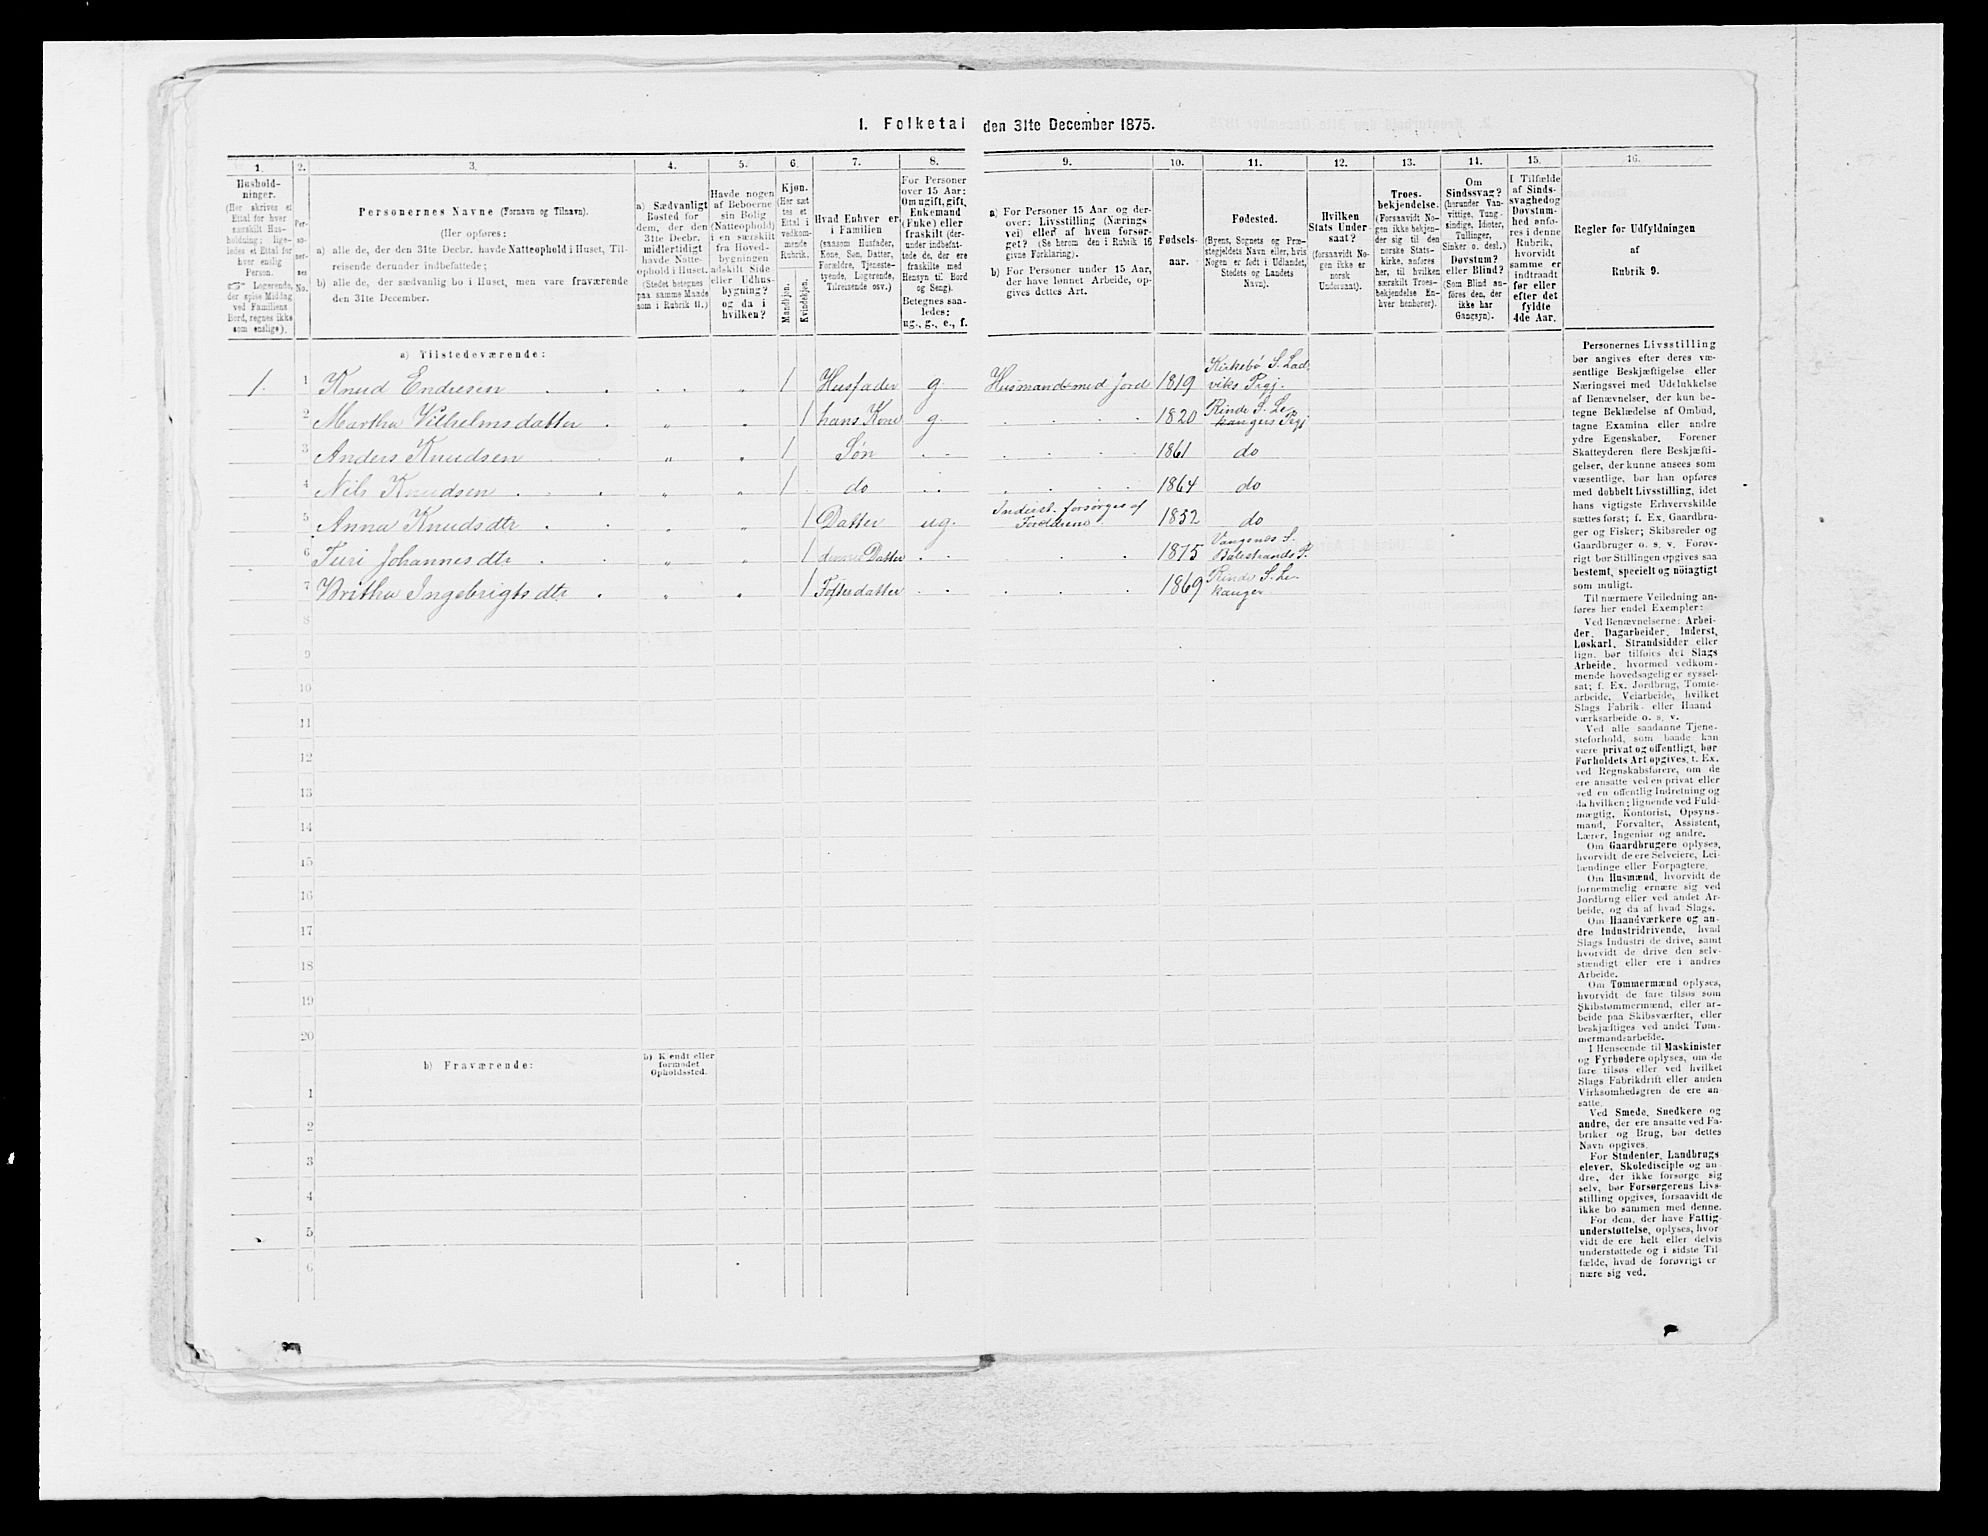 1. Folketal den 31te December 1875.
1.
Hushold-
ninger.
(Her skrives et
Ettal for hver
særskilt Hus-
holdning; lige-
ledes et Ettal for
hver enslig
Person.
☞ Logerende,
der spise Middag
ved Familiens
Bord, regnes ikke
som enslige).
2.
Per-
so-
ner-
nes
No.
3.
Personernes Navne (Fornavn og Tilnavn).
(Her opføres:
a) alle de, der den 31te Decbr. havde Natteophold i Huset, Til-
reisende derunder indbefattede;
b) alle de, der sædvanlig bo i Huset, men vare fraværende
den 31te December.
4.
a) Sædvanligt
Bosted for
dem, der den
31te Decbr.
midlertidigt
havde Natte-
ophold i Huset.
(Stedet betegnes
paa samme Maade
som i Rubrik 11.)
5.
Havde nogen
af Beboerne
sin Bolig
(Natteophold)
i en særskilt
fra Hoved-
bygningen
adskilt Side-
eller Udhus-
bygning?
og da i
hvilken?
6.
Kjøn.
(Her sæt-
tes et
Ettal i
vedkom-
mende
Rubrik.
Mandkjøn.
Kvindekjøn.
7.
Hvad Enhver er
i Familien
(saasom Husfader,
Kone, Søn, Datter,
Forældre, Tjeneste-
tyende, Logerende,
Tilreisende osv.)
8.
For Personer
over 15 Aar:
Om ugift, gift,
Enkemand
(Enke) eller
fraskilt (der-
under indbefat-
tede de, der ere
fraskilte med
Hensyn til Bord
og Seng).
Betegnes saa-
ledes:
ug., g., e., f.
9.
a) For Personer 15 Aar og der-
over: Livsstilling (Nærings-
vei) eller af hvem forsør-
get? (Se herom den i Rubrik 16
givne Forklaring).
b) For Personer under 15 Aar,
der have lønnet Arbeide, op-
gives dettes Art.
10.
Fødsels-
aar.
11.
Fødested.
(Byens, Sognets og Præ-
stegjeldets Navn eller, hvis
Nogen er født i Udlandet,
Stedets og Landets
Navn).
12.
Hvilken
Stats Under-
saat?
(forsaavidt No-
gen ikke er
norsk
Undersaat).
13.
Troes-
bekjendelse.
(Forsaavidt No-
gen ikke bekjen-
der sig til den
norske Stats-
kirke, anføres
her, til hvilken
særskilt Troes-
bekjendelse En-
hver henhører).
14.
Om
Sindssvag?
(herunder Van-
vittige, Tung-
sindige, Idioter,
Tullinger,
Sinker o. desl.)
Døvstum?
eller Blind?
(Som Blind an-
føres den, der
ikke har
Gangsyn).
15.
I Tilfælde
af Sinds-
svaghed og
Døvstum-
hed anfø-
res i denne
Rubrik,
hvorvidt
samme er
indtraadt
før eller
efter det
fyldte
4de Aar.
16.
Regler for Udfyldningen
af
Rubrik 9.
a) Tilstedeværende:
1. 1 Knud Endresen . . . . „ 1 Husfader g. Husmand med Jord 1819 Kirkebø S. Lad-
viks Prgj.
2 Martha Vilhelmsdatter . „ „ 1 hans Kone g. . . . 1820 Rinde S. Le-
kangers Prgj
3 Anders Knudsen . „ „ 1 Søn . . . . . 1861 do
4 Nils Knudsen . . „ „ 1 do . . . . . 1864 do
5 Anna Knudsdtr . . „ „ 1 Datter ug. Inderst. forsørges af
Forældrene 1852 do
6 Turi Johannesdtr . . „ „ 1 dennes Datter . . . . 1875 Vangsnes S.
Balestrands P.
7 Britha Ingebrigtsdtr . „ „ 1 Fosterdatter . . . . . 1869 Rinde S. Le-
kanger
8
9
10
11
12
13
14
15
16
17
18
19
20
b) Fraværende:
b) Kjendt eller
formodet
Opholdssted.
1
2
3
4
5
6
Personernes Livsstilling
bør angives efter deres væ-
sentlige Beskjæftigelse eller
Næringsvei med Udelukkelse
af Benævnelser, der kun be-
tegne Beklædelse af Ombud,
tagne Examina eller andre
ydre Egenskaber. Forener
Skatteyderen flere Beskjæfti-
gelser, der kunne ansees som
væsentlige, bør han opføres
med dobbelt Livsstilling, idet
hans vigtigste Erhvervskilde
sættes først; f. Ex. Gaardbru-
ger og Fisker; Skibsreder og
Gaardbruger o. s. v. Forøv-
rigt bør Stillingen opgives saa
bestemt, specielt og nöiagtigt
som muligt.
Til nærmere Veiledning an-
føres her endel Exempler:
Ved Benævnelserne: Arbei-
der, Dagarbeider, Inderst,
Løskarl, Strandsidder eller
lign. bør tilføies det Slags
Arbeide, hvormed vedkom-
mende hovedsagelig er syssel-
sat; f. Ex. Jordbrug, Tomte-
arbeide, Veiarbeide, hvilket
Slags Fabrik- eller Haand-
værksarbeide o. s. v.
Ved alle saadanne Tjene-
steforhold, som baade kan
være privat og offentligt, bør
Forholdets Art opgives, t. Ex.
ved Regnskabsførere, om de
ere ansatte ved en privat eller
ved en offentlig Indretning og
da hvilken; lignende ved Fuld-
mægtig, Kontorist, Opsyns-
mand, Forvalter, Assistent,
Lærer, Ingeniør og andre.
Om Gaardbrugere oplyses,
hvorvidt de ere Selveiere, Lei-
lændinge eller Forpagtere.
Om Husmænd, hvorvidt de
fornemmelig ernære sig ved
Jordbrug eller ved andet Ar-
beide, og da af hvad Slags.
Om Haandværkere og an-
dre Industridrivende, hvad
Slags Industri de drive, samt
hvorvidt de drive den selv-
stændigt eller ere i andres
Arbeide.
Om Tømmermænd oplyses,
hvorvidt de fare tilsøs som
Skibstømmermænd, eller ar-
beide paa Skibsværfter, eller
beskjæftiges ved andet Tøm-
mermandsarbeide.
I Henseende til Maskinister
og Fyrbødere oplyses, om de
fare tilsøs eller ved hvilket
Slags Fabrikdrift eller anden
Virksomhedsgren de ere an-
satte.
Ved Smede, Snedkere og
andre, der ere ansatte ved Fa-
briker og Brug, bør dettes
Navn opgives.
For Studenter, Landbrugs-
elever, Skoledisciple og an-
dre, der ikke forsørge sig
selv, bør Forsørgerens Livs-
stilling opgives, forsaavidt de
ikke bo sammen med denne.
For dem, der have Fattig-
understøttelse, oplyses, hvor-
vidt de ere helt eller delvis
understøttede og i sidste Til-
fælde, hvad de forøvrigt er-
nære sig ved.